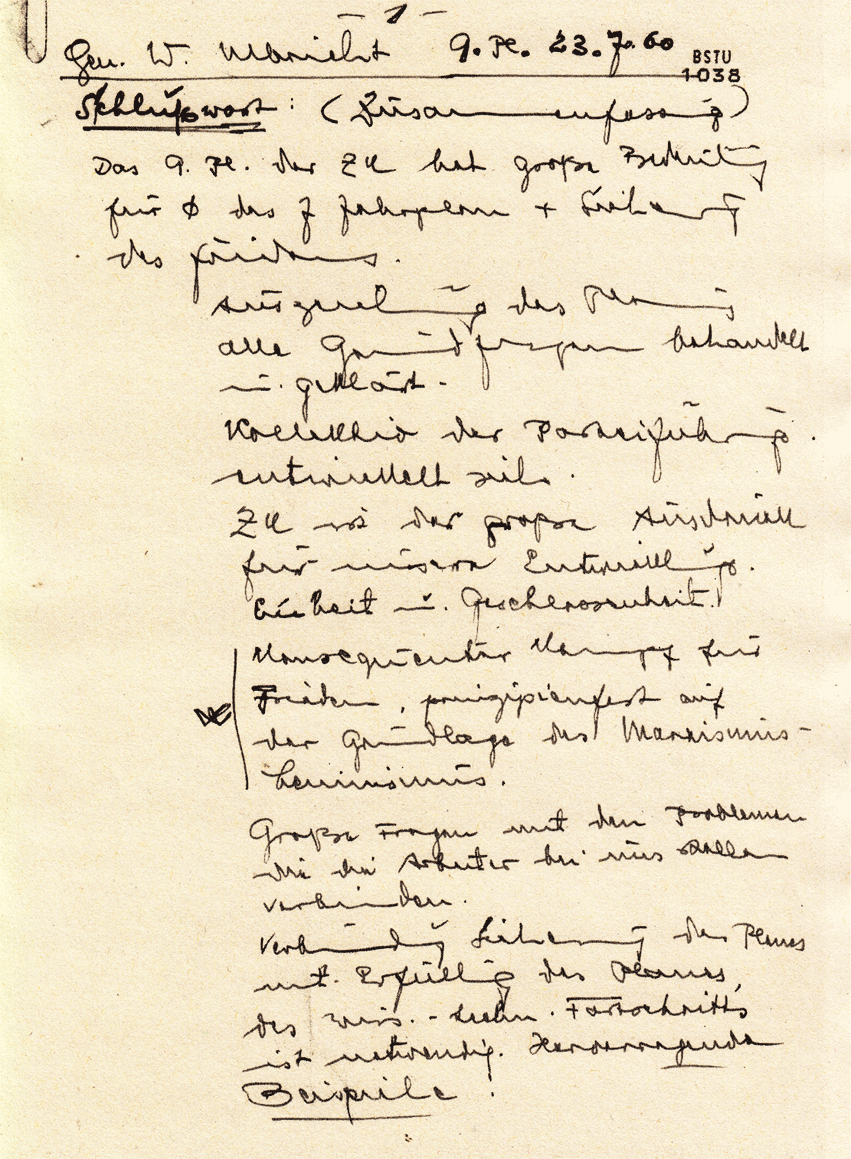 - 1 -
Gen. W. Ulbricht 9. Pl. 23.7.60
BSTU
1038
Schlußwort: (Zusammenfassung)
Das 9. Pl. des ZK hat große Bedeutung
für des 7 Jahrplan + Sicherung
des Friedens.
Auszeichnung des
alle Grundfragen behandelt
u. geklärt.
Kollektiv der Parteiführung
entwickelt sich.
ZK ist der große Ausdruck
für unsere Entwicklung.
Einheit u. Geschlossenheit!
Konsequenter Kampf für
Frieden, prinzipienfest auf
der Grundlage des Marxismus-
Leninismus.
Große Fragen mit den Problemen
die die Arbeiter bei uns stellen
verbinden.
Verbindung Sicherung des Planes
mit Erfüllung des Planes,
des wiss.-techn. Fortschritts
ist notwendig. Hervorragende
Beispiele!